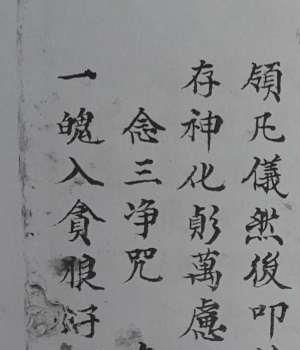 領凡儀然後叩
存神化䫉萬慮
念三净咒
一魄入貪狼